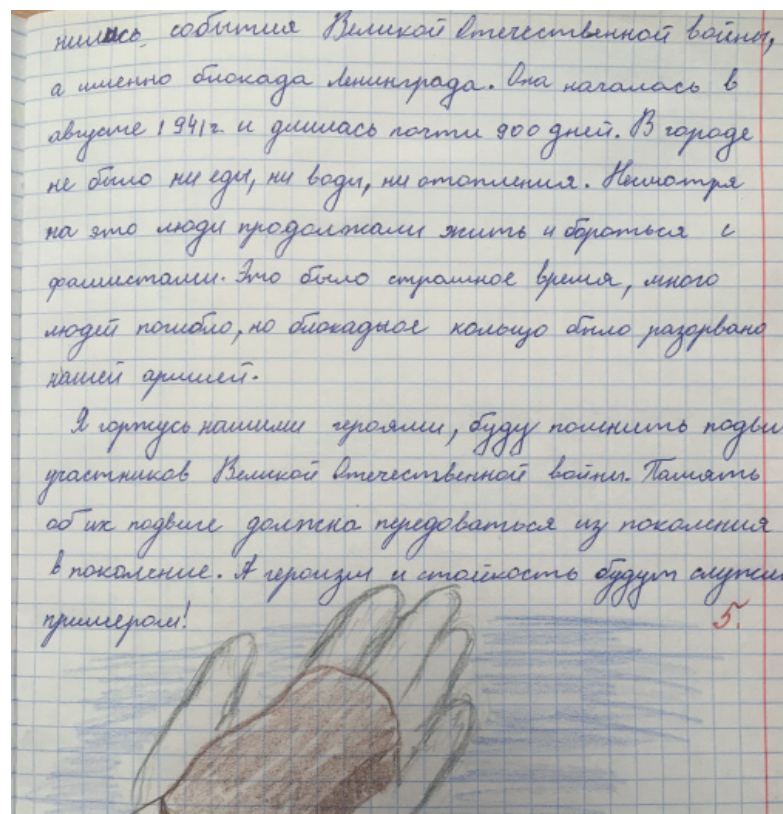 нились события Великой Отечественной войны,
а именно блокада Ленинграда. Она началась в
августе 1941г. и длилась почти 900 дней. В городе
не было ни еды, ни воды, ни отопления. Несмотря
на это люди продолжали жить и бороться с
фашистами. Это было страшное время, много
людей погибло, но блокадное кольцо было разорвано
нашей армией.
Я горжусь нашими героями, буду помнить подви
участников Великой Отечественной войны. Память
об их подвиге должна передоваться из поколения
в поколение. А героизм и стойкость будут служи
примером!
5.